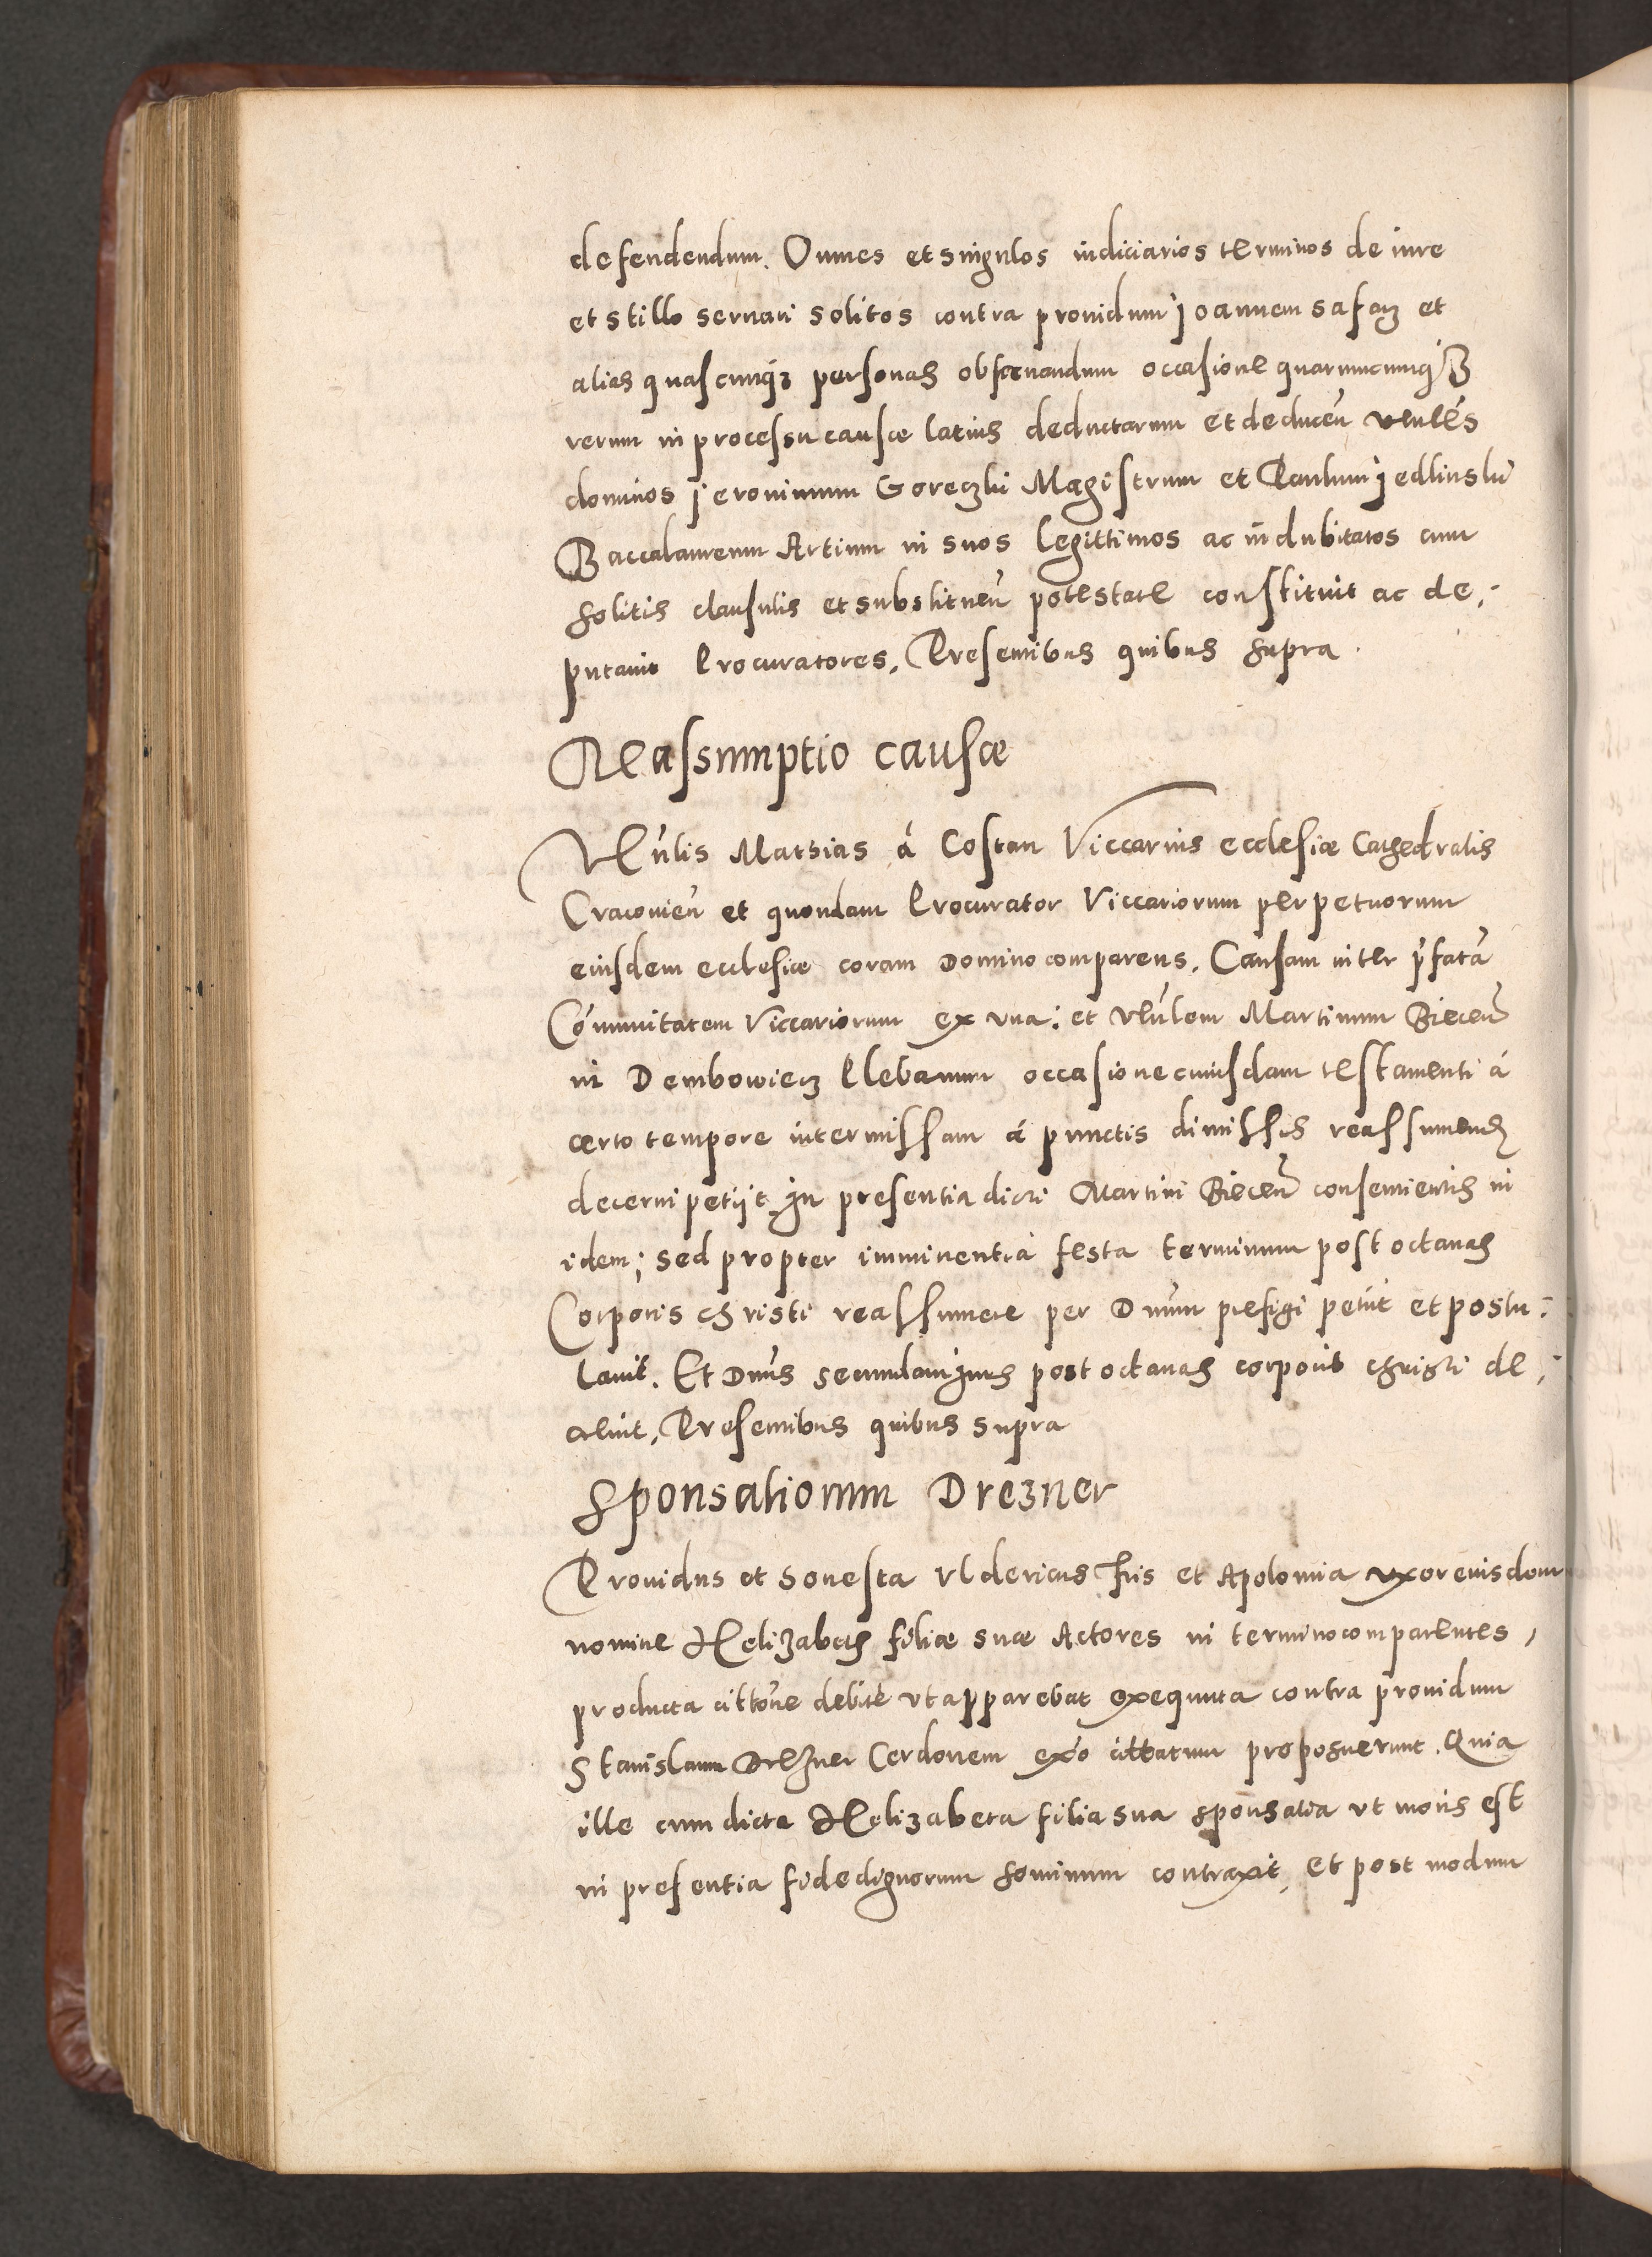 defendendum. Omnes et singulos iudiciarios terminos de iure
et stillo seruari solitos contra prouidum Joannem safarz et
alias quascunq3 personas obseruandum occasione quarumcunq3
rerum in processu causæ latius deductarum et deduceñ venlẽs
dominos Jeronimum Goreczki Magistrum et Paulum Jedlinski
Baccalaureum Artium in suos legittimos ac indubitatos cum
solitis clausulis et substitueñ potestate constituit ac de,-
putauit Procuratores, Presentibus quibus supra.
Reassumptio causæ
Veñlis Mathias á Costan Viccarius ecclesiæ Cathedralis
Cracouieñ et quondam Procurator Viccariorum perpetuorum
eiusdem ecclesiæ coram Domino comparens. Causam inter p̃fatã
Cõmunitatem Viccariorum ex vna: et veñlem Martinum Bieceñ
in Dembowiecz Plebanum occasione cuiusdam testamenti á
certo tempore intermissam á punctis dimissis reassumend
decerni petijt. In presentia dicti Martini Bieceñ consentientis in
idem; sed propter imminentia festa terminum post octauas
Corporis christi reassumere per Dnũm prefigi petiit et postu:
lauit. Et Dnũs secundam Juris post octauas corporis christi de,-
creuit, Presentibus quibus supra
Sponsaliorum Drezner
Prouidus et honesta Vldericus his et Apolonia vxor eiusdem
nomine Helizabeth filiæ suæ Actores in termino comparentes,
producta cittõne debitè vt apparebat exequuta contra prouidum
Stanislaum Drezner Cerdonem ex̃o cittatum proposuerunt. Quia
ille cum dicta Helizabeta filia sua sponsalia vt moris est
in presentia fidedignorum hominum contraxit, et post modum